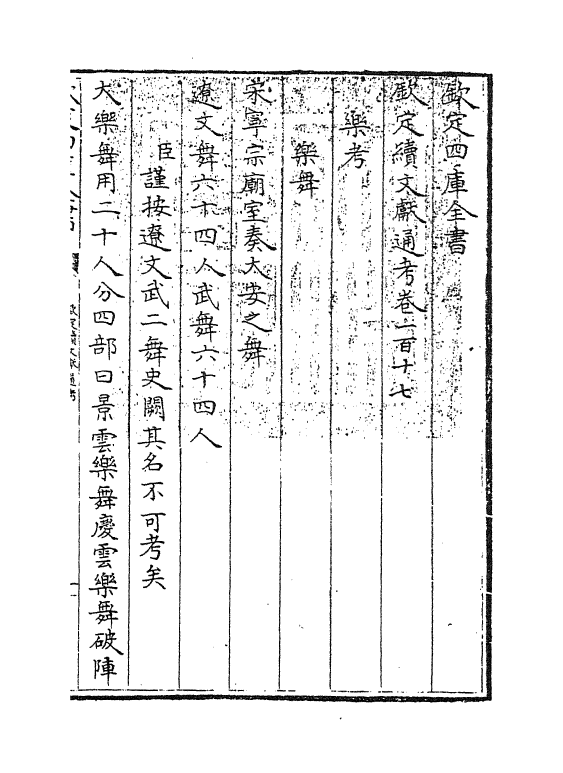 欽定四庫全書
欽定續文獻通考卷一百十七
樂考
樂舞
宋寧宗廟室奏大安之舞
遼文舞六十四人武舞六十四人
臣謹按遼文武二舞史闕其名不可考矣
大樂舞用二十人分四部曰景雲樂舞慶雲樂舞破陣